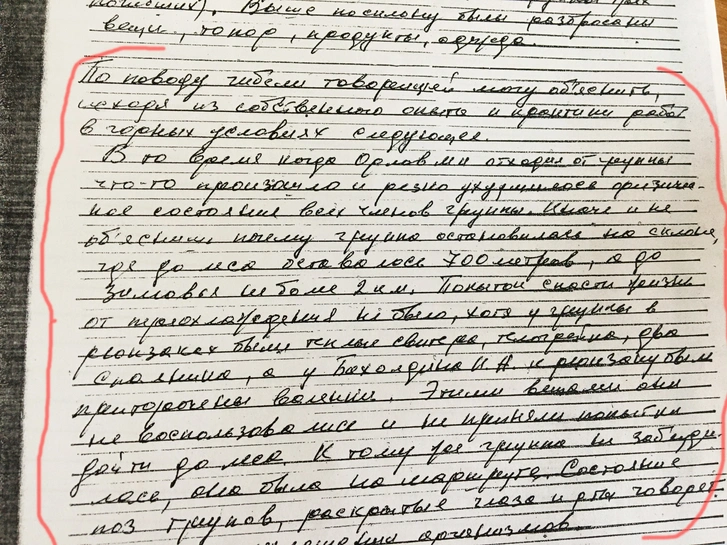 погибших). Выше по склону были разбросаны
вещи, топор, продукты, одежда.
По поводу гибели товарищей могу об'яснить,
исходя из собственного опыта и практики работ
в горных условиях следующее.
В то время когда Орлов МН отходил от группы
что-то произошло и резко ухудшилось физичес-
кое состояние всех членов группы. Иначе и не
об'яснишь почему группа остановилась на склоне,
где до леса оставалось 700 метров, а до
зимовья не более 2 км. Попыток спасти жизнь
от переохлаждения не было, хотя у группы в
рюкзаках были теплые свитера, телогрейка, два
спальника, а у Бахолдина И А. к рюкзаку были
приторочены валенки. Этими вещами они
не воспользовались и не приняли попытки
дойти до леса. К тому же группа не заблуди-
лась, она была на маршруте. Состояние
поз трупов, раскрытые глаза и рты говорят
организмов.